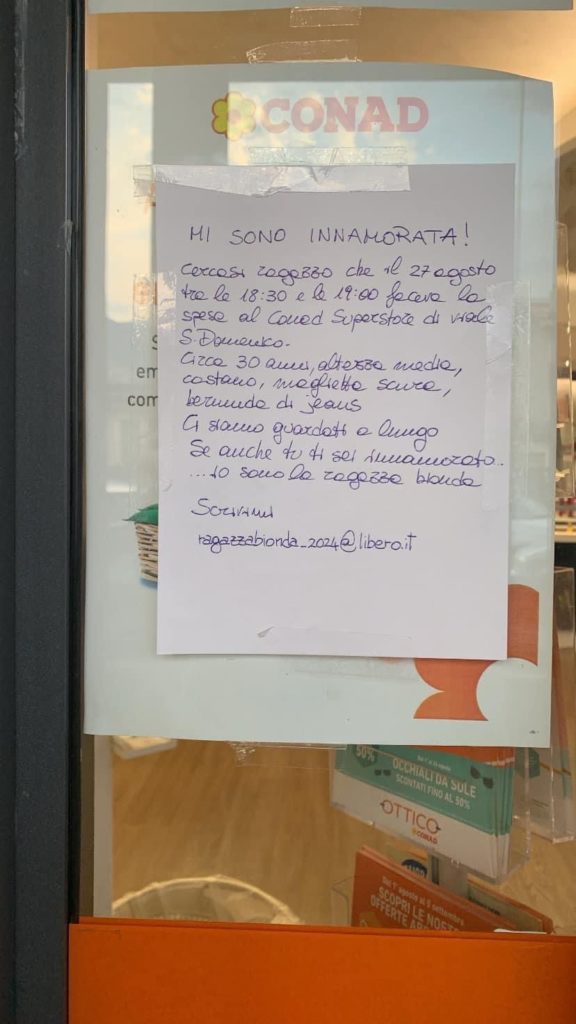 CONAD
MI SONO INNAMORATA!
Cercasi ragazzo che il 27 agosto
tra le 18:30 e le 19:00 faceva la
spesa al Conad Superstore di viale
S. Domenico.
Circa 30 anni, altezza media,
castano, maglietta scura,
bermuda di jeans
Ci siamo guardati a lungo
Se anche tu ti sei innamorato..
... io sono la ragazza bionda
Scrivimi
ragazzabionda_2024@libero.it
S
em
com
50%
OCCHIALI DA SOLE
SCONTATI FINO AL 50%
OTTICO
CONAD
Dal 1° agosto al 8 settembre
SCOPRI LE NOSTR
OFFERTE